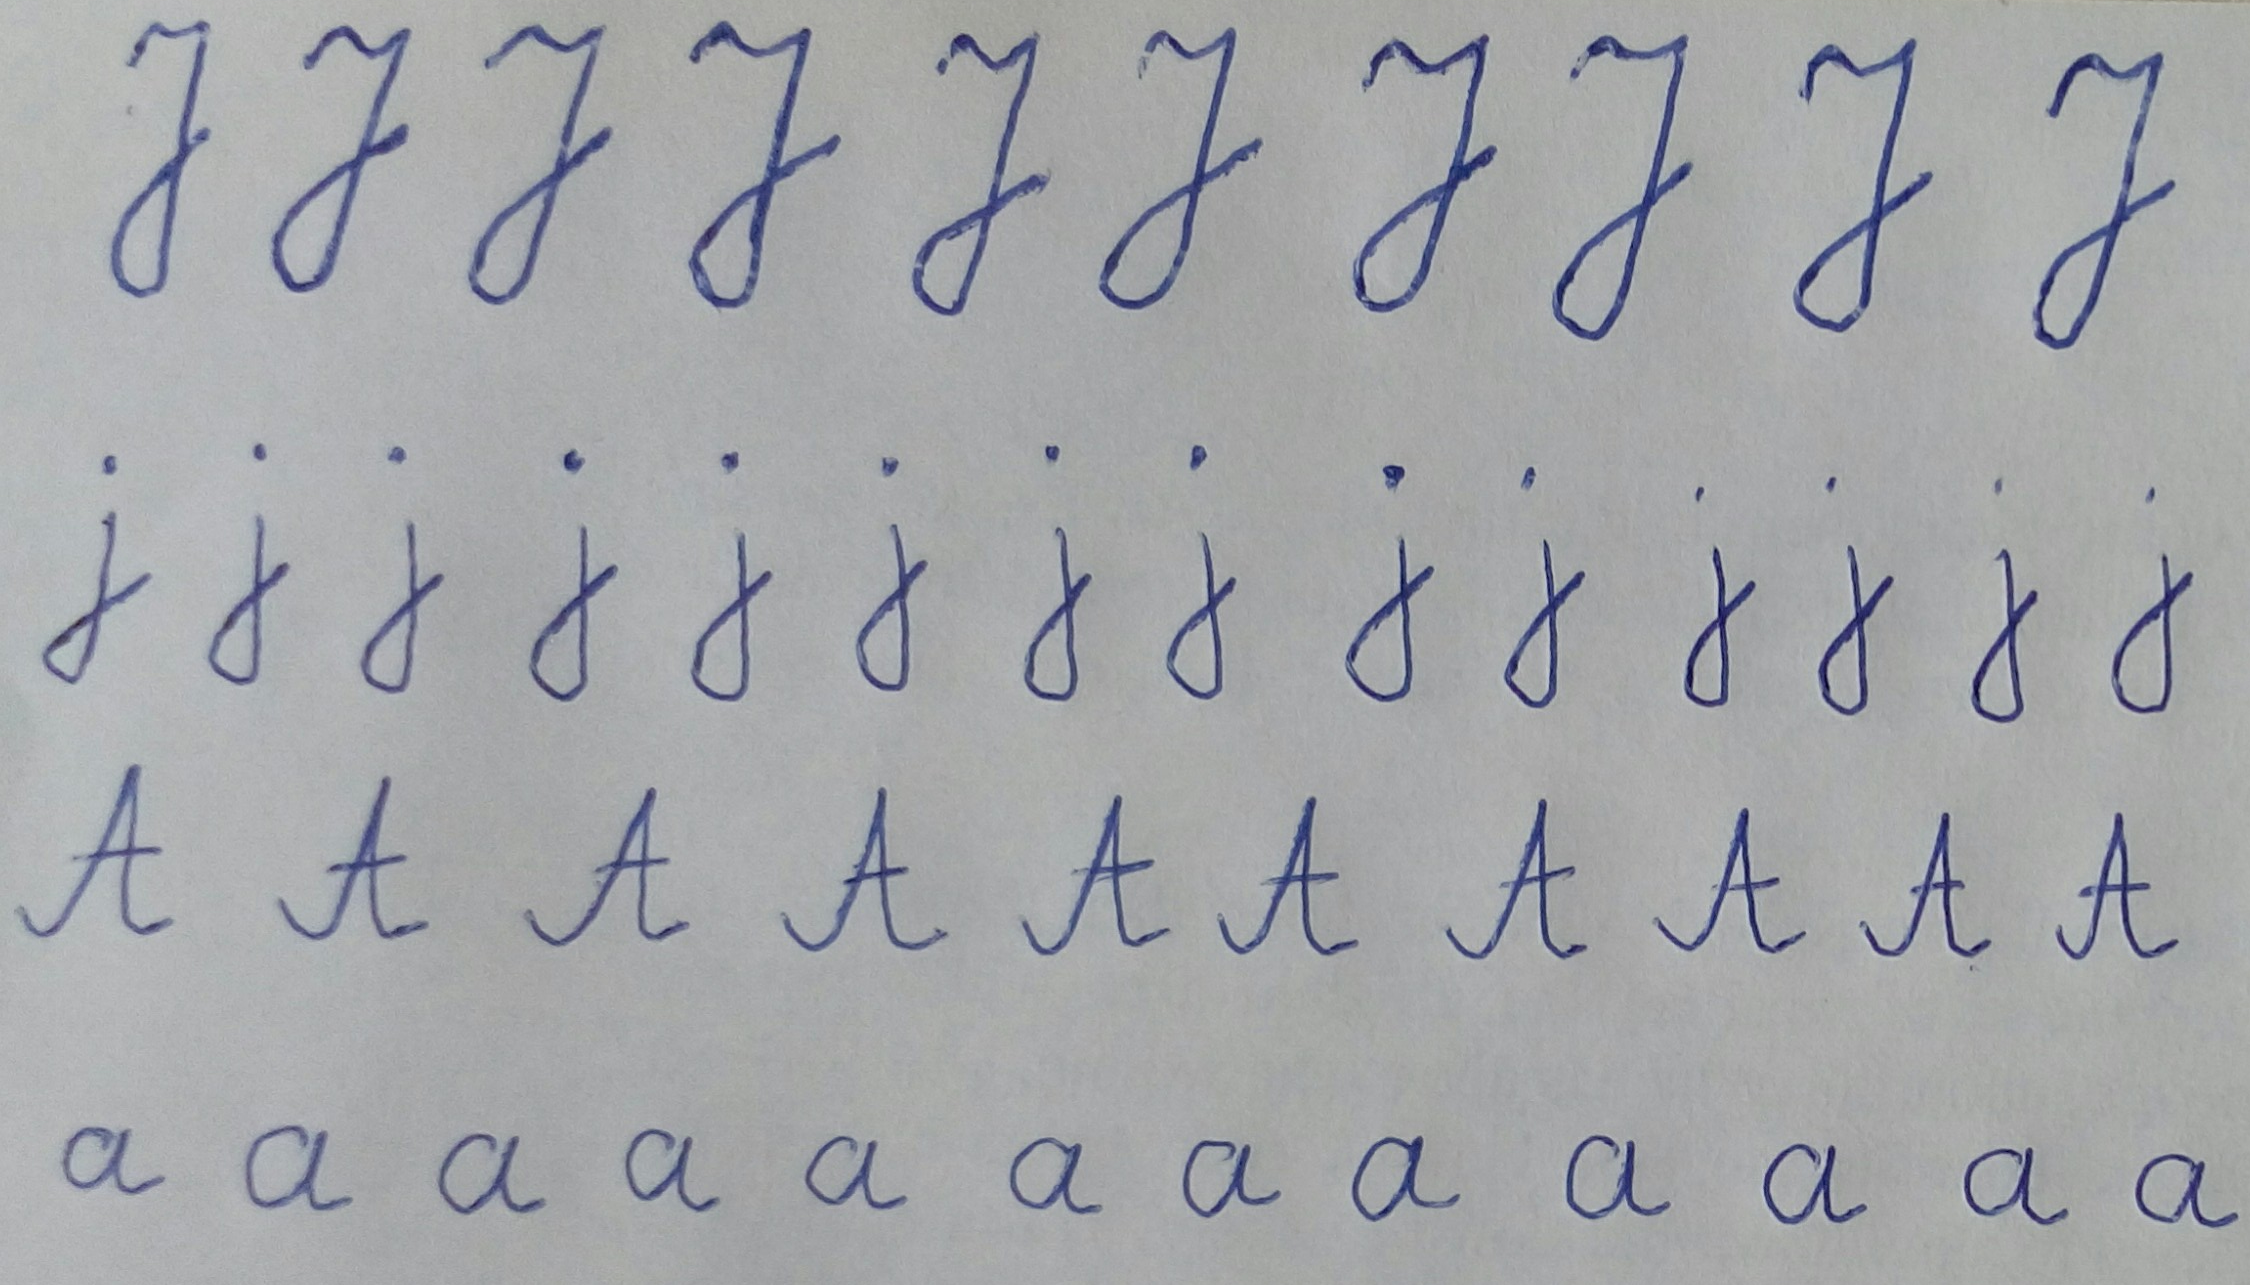 J J J J J J J J J J
j j j j j j j j j j j j j j
A A A A A A A A A A
a a a a a a a a a a a a